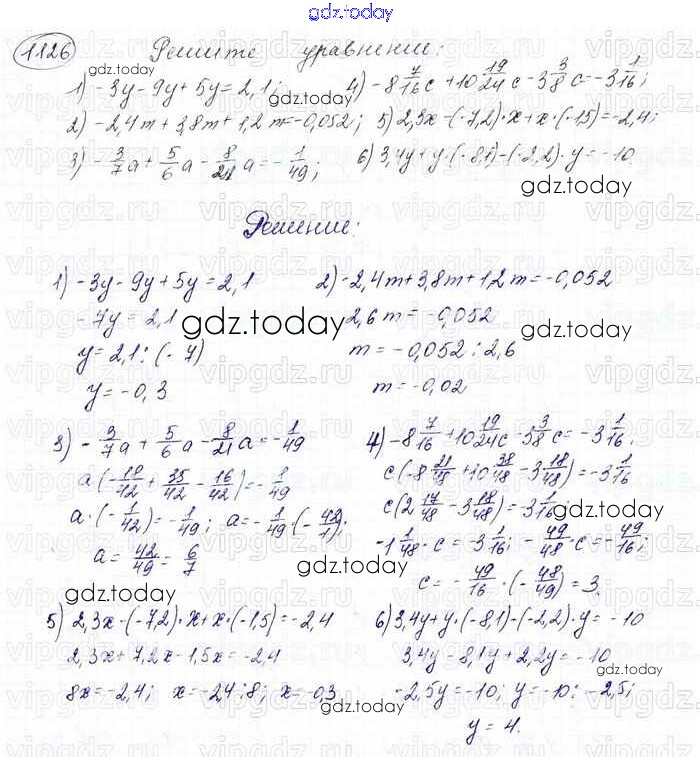 gdz.today
1126 Решите уравнение:
gdz.today
1) -3y-9y+5y=2,1; 4) -8 7/16 c + 10 19/24 c - 3 3/8 c = -3 1/16;
2) -2,4m+3,8m+1,2m=-0,052; 5) 2,3x-(-7,2)·x+x·(-1,5)=-2,4;
3) -3/7 a + 5/6 a - 8/21 a = -1/49; 6) 3,4y+y·(-8,1)-(-2,2)·y=-10
gdz.today
gdz.today
Решение:
1) -3y-9y+5y=2,1 2) -2,4m+3,8m+1,2m=-0,052
-7y=2,1 2,6m=-0,052
gdz.today
y=2,1:(-7) m=-0,052:2,6
gdz.today
y=-0,3 m=-0,02
3) -3/7 a + 5/6 a - 8/21 a = -1/49 4) -8 7/16 + 10 19/24 c - 3 3/8 c = -3 1/16;
a(-18/42 + 35/42 - 16/42) = -1/49 c(-8 21/48 + 10 38/48 - 3 18/48) = -3 1/16
a·(-1/42) = -1/49; a = -1/49·(-42/1); c(2 17/48 - 3 18/48) = 3 1/16
gdz.today
a = 42/49 = 6/7 -1 1/48·c = -3 1/16; -49/48·c = -49/16;
gdz.today
c = -49/16·(-48/49) = 3.
gdz.today
5) 2,3x-(-7,2)·x+x·(-1,5)=-2,4 6) 3,4y+y·(-8,1)-(-2,2)·y=-10
2,3x+7,2x-1,5x=-2,4 3,4y-8,1y+2,2y=-10
gdz.today
8x=-2,4; x=-2,4:8; x=-0,3 -2,5y=-10; y=-10:-2,5;
gdz.today
y=4.
vipgdz.ru